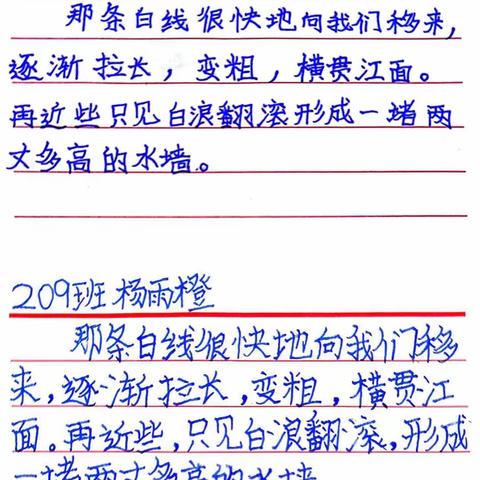 那条白线很快地向我们移来，
逐渐拉长，变粗，横贯江面。
再近些只见白浪翻滚形成一堵两
丈多高的水墙。
209班杨雨橙
那条白线很快地向我们移
来，逐渐拉长，变粗，横贯江
面。再近些，只见白浪翻滚，形成
一堵两丈多高的水墙